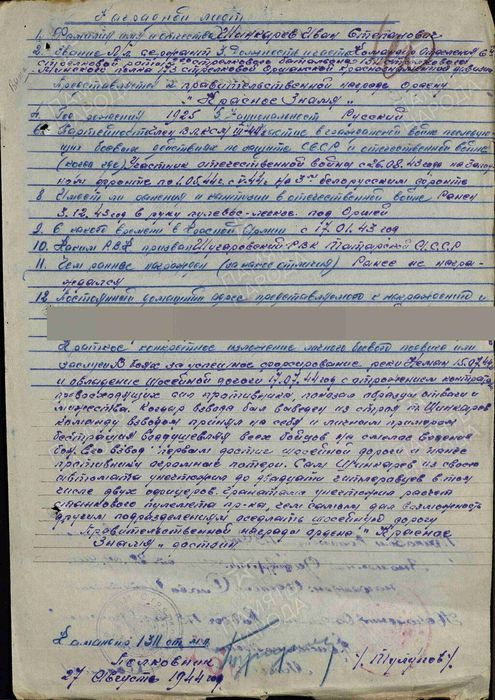 Наградной лист
1. Фамилия имя и отчество Шинкарев Иван Степанович
2. Звание Мл. сержант 3 Должность и часть Командир отделения
стрелковой роты стрелкового батальона 1311 стрелкового
полка 173 стрелковой Оршанской Краснознаменной дивизии
Представляется к правительственной награде Ордену
"Красное Знамя"
4. Год рождения 1925 5 Национальность Русский
6. Партийность член ВЛКСМ участие в гражданской войне последую-
щих боевых действиях по защите СССР и отечественной войне
(когда где) Участник отечественной войны с 26.08.43 года на Запад-
ном фронте по на 3м белорусским фронте
8 Имеет ли ранения и контузии в отечественной войне Ранен
3.12.43 год в руку пулевое-легкое под Оршей
9. С какого времени в Красной Армии с 17.01.43 год
10. Каким РВК призван РВК Татарской АССР
11. Чем раннее награжден (за какие отличия) Ранее не награ-
ждался
12. Постоянный домашний адрес представляемого к награждению и
Краткое конкретное изложение личного боевого подвига или
заслуги В боях за успешное форсирование реки Неман 15.07.44г
и овладение шоссейной дороги 17.07.44 год с отражением контратак
превосходящих сил противника, показал образцы отваги и
мужества. Когда командир взвода был выведен из строя т. Шинкарев
команду взводом принял на себя и личным примером
бесстрашия воодушевлял всех бойцов на смелое ведение
боя. Его взвод первым достиг шоссейной дороги и нанес
противнику огромные потери. Сам Шинкарев из своего
автомата уничтожил до двадцати гитлеровцев в том
числе двух офицеров. Гранатами уничтожил расчет
станкового пулемета пр-ка, чем самым дал возможность
другим подразделениям оседлать шоссейную дорогу
Правительственной награды ордена "Красное
Знамя" достоин
Командир 1311 стр. полка
Полковник
27 Августа 1944 год.